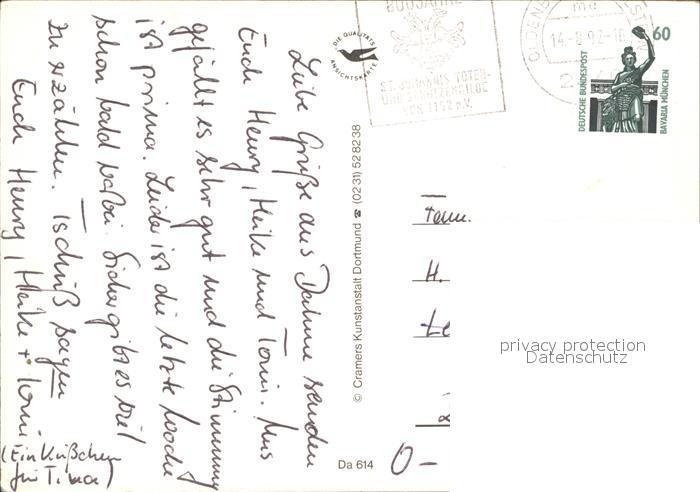 Liebe Grüße aus Dahme senden
Euch Henry, Heike und Toni. Uns
gefällt es sehr gut und die Stimmung
ist prima. Leider ist die letzte Woche
schon bald vorbei. Sicher gibt es viel
zu erzählen. Tschüß sagen
Euch Henry, Heike + Toni
(Ein Küßchen
für Tina)
DIE QUALITÄTS
ANSICHTSKARTE
© Cramers Kunstanstalt Dortmund ☎ (0231) 528238
Da 614
800 JAHRE
ST. JOHANNIS TOTEN-
UND SCHÜTZENGILDE
VON 1192 e.V.
OLDENBURG
14-8.92-16
2
60
DEUTSCHE BUNDESPOST
BAVARIA MÜNCHEN
Fam.
H.
Le
O-
privacy protection
Datenschutz